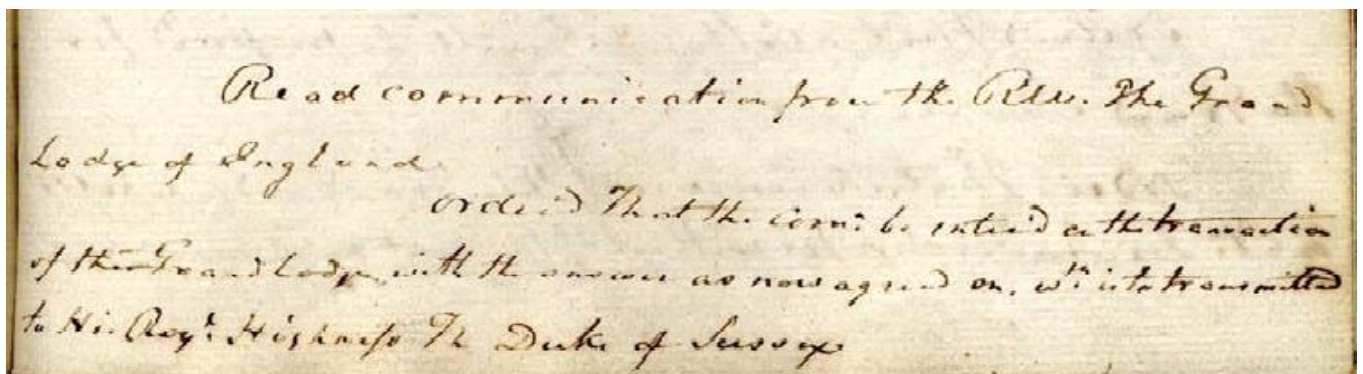 Read communication from the The Grand
Lodge of England.
Order'd That the com: be enter'd on the transaction
of this Grand Lodge, with the answer as now agreed on, wh. is to transmitted
to His Roy: Highness The Duke of Sussex